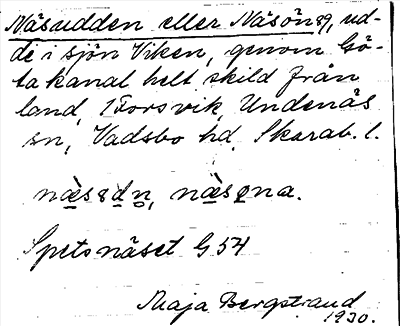 Näsudden eller Näsön 89, ud-
de i sjön Viken, genom Gö-
ta kanal helt skild från
land, 1 Forsvik, Undenäs
sn, Vadsbo hd. Skarab. l.
Spetsnäset G 54
Maja Bergstrand
1930.